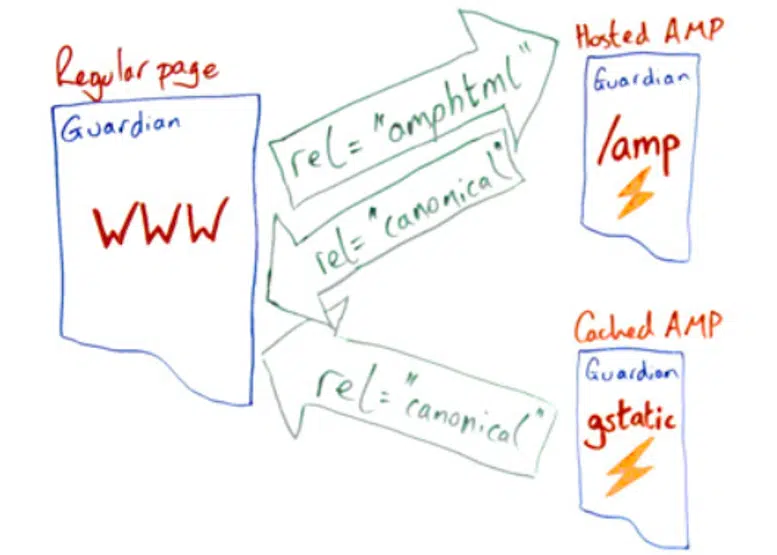 Regular page
Guardian
WWW
rel="amphtml"
rel="canonical"
rel="canonical"
Hosted AMP
Guardian
/amp
Cached AMP
Guardian
gstatic